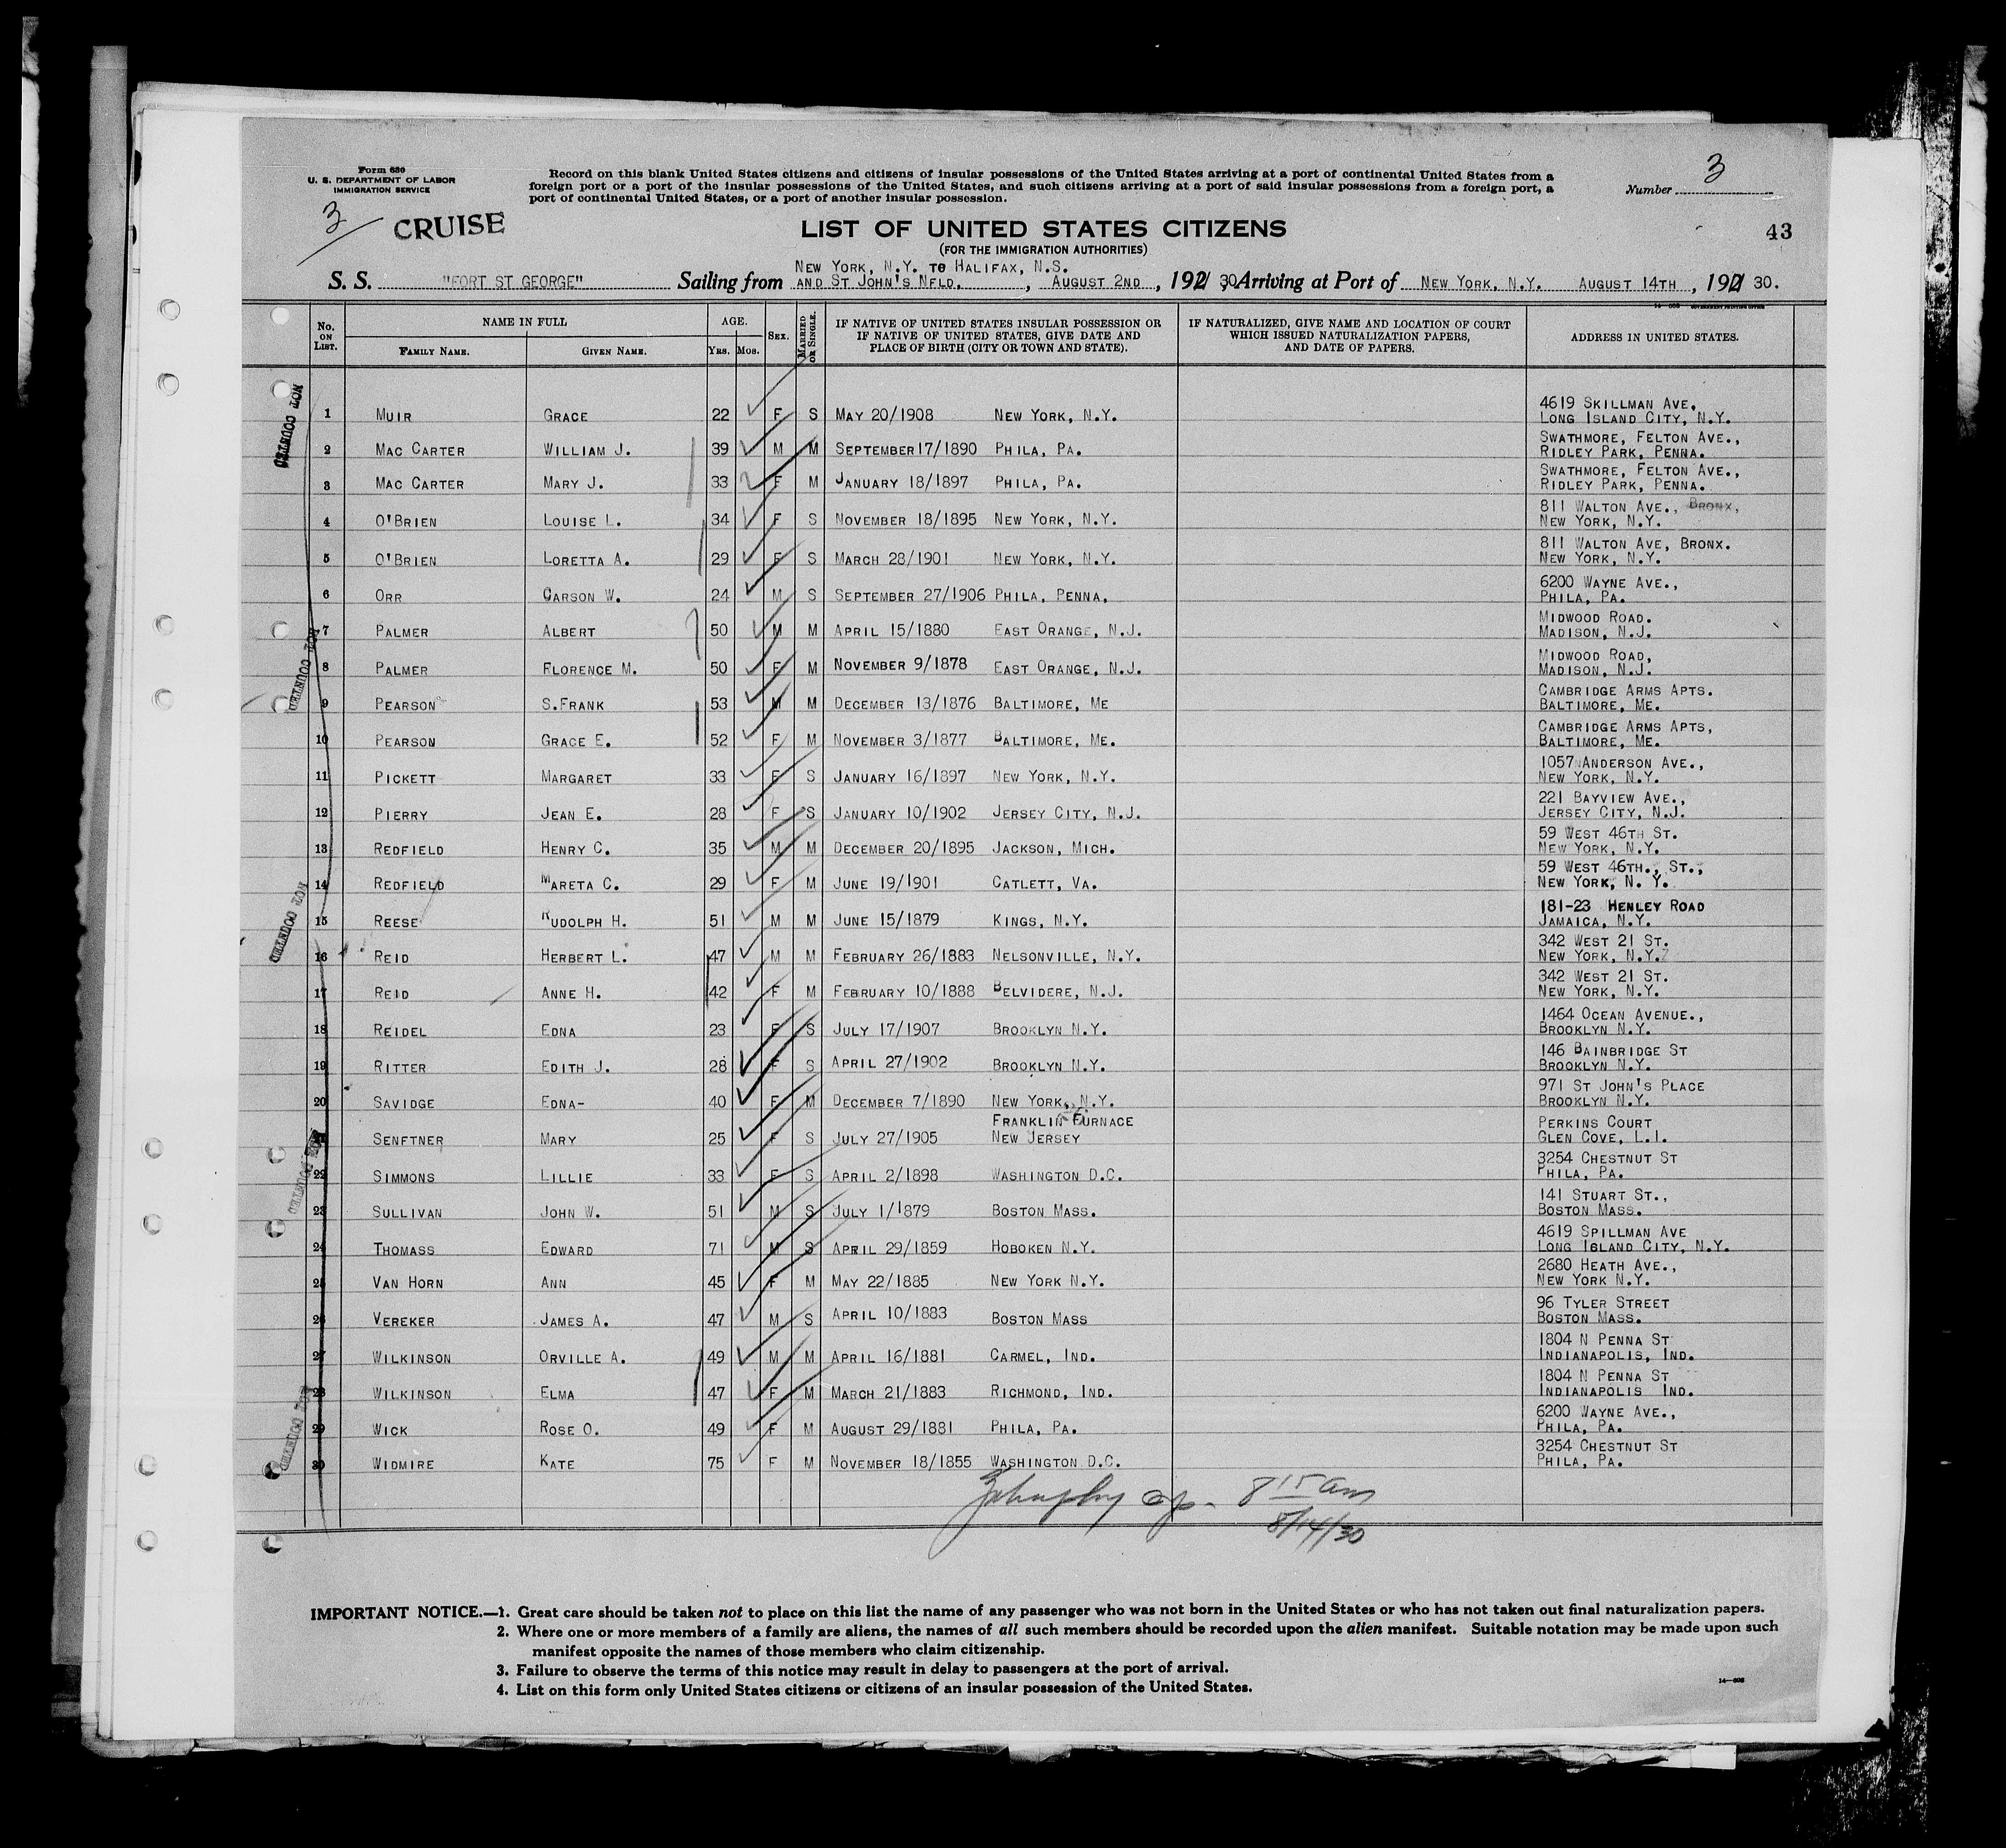 Form 630
U. S. DEPARTMENT OF LABOR
IMMIGRATION SERVICE
Record on this blank United States citizens and citizens of insular possessions of the United States arriving at a port of continental United States from a
foreign port or a port of the insular possessions of the United States, and such citizens arriving at a port of said insular possessions from a foreign port, a
port of continental United States, or a port of another insular possession.
Number 3
3 CRUISE
LIST OF UNITED STATES CITIZENS
43
(FOR THE IMMIGRATION AUTHORITIES)
NEW YORK, N.Y. TO HALIFAX, N.S.
S. S. "FORT ST GEORGE" Sailing from AND ST JOHN'S NFLD. , AUGUST 2ND , 192 30 Arriving at Port of NEW YORK, N.Y. AUGUST 14TH , 192 30.
No. ON LIST. NAME IN FULL AGE. SEX. MARRIED OR SINGLE. IF NATIVE OF UNITED STATES INSULAR POSSESSION OR IF NATIVE OF UNITED STATES, GIVE DATE AND PLACE OF BIRTH (CITY OR TOWN AND STATE). IF NATURALIZED, GIVE NAME AND LOCATION OF COURT WHICH ISSUED NATURALIZATION PAPERS, AND DATE OF PAPERS. ADDRESS IN UNITED STATES.
FAMILY NAME. GIVEN NAME. YRS. MOS.
NOT COUNTED
1 MUIR GRACE 22 F S MAY 20/1908 NEW YORK, N.Y. 4619 SKILLMAN AVE,
LONG ISLAND CITY, N.Y.
2 MAC CARTER WILLIAM J. 39 M M SEPTEMBER17/1890 PHILA, PA. SWATHMORE, FELTON AVE.,
RIDLEY PARK, PENNA.
3 MAC CARTER MARY J. 33 F M JANUARY 18/1897 PHILA, PA. SWATHMORE, FELTON AVE.,
RIDLEY PARK, PENNA.
4 O'BRIEN LOUISE L. 34 F S NOVEMBER 18/1895 NEW YORK, N.Y. 811 WALTON AVE., BRONX,
NEW YORK, N.Y.
5 O'BRIEN LORETTA A. 29 F S MARCH 28/1901 NEW YORK, N.Y. 811 WALTON AVE, BRONX.
NEW YORK, N.Y.
6 ORR CARSON W. 24 M S SEPTEMBER 27/1906 PHILA, PENNA. 6200 WAYNE AVE.,
PHILA, PA.
NOT COUNTED
7 PALMER ALBERT 50 M M APRIL 15/1880 EAST ORANGE, N.J. MIDWOOD ROAD.
MADISON, N.J.
8 PALMER FLORENCE M. 50 F M NOVEMBER 9/1878 EAST ORANGE, N.J. MIDWOOD ROAD,
MADISON, N.J.
9 PEARSON S.FRANK 53 M M DECEMBER 13/1876 BALTIMORE, ME CAMBRIDGE ARMS APTS.
BALTIMORE, ME.
10 PEARSON GRACE E. 52 F M NOVEMBER 3/1877 BALTIMORE, ME. CAMBRIDGE ARMS APTS,
BALTIMORE, ME.
11 PICKETT MARGARET 33 F S JANUARY 16/1897 NEW YORK, N.Y. 1057 ANDERSON AVE.,
NEW YORK, N.Y.
12 PIERRY JEAN E. 28 F S JANUARY 10/1902 JERSEY CITY, N.J. 221 BAYVIEW AVE.,
JERSEY CITY, N.J.
13 REDFIELD HENRY C. 35 M M DECEMBER 20/1895 JACKSON, MICH. 59 WEST 46TH ST.
NEW YORK, N.Y.
14 REDFIELD MARETA C. 29 F M JUNE 19/1901 CATLETT, VA. 59 WEST 46TH., ST.,
NEW YORK, N. Y.
NOT COUNTED
15 REESE RUDOLPH H. 51 M M JUNE 15/1879 KINGS, N.Y. 181-23 HENLEY ROAD
JAMAICA, N.Y.
16 REID HERBERT L. 47 M M FEBRUARY 26/1883 NELSONVILLE, N.Y. 342 WEST 21 ST.
NEW YORK, N.Y.
17 REID ANNE H. 42 F M FEBRUARY 10/1888 BELVIDERE, N.J. 342 WEST 21 ST.
NEW YORK, N.Y.
18 REIDEL EDNA 23 F S JULY 17/1907 BROOKLYN N.Y. 1464 OCEAN AVENUE.,
BROOKLYN N.Y.
19 RITTER EDITH J. 28 F S APRIL 27/1902 BROOKLYN N.Y. 146 BAINBRIDGE ST
BROOKLYN N.Y.
20 SAVIDGE EDNA- 40 F M DECEMBER 7/1890 NEW YORK, N.Y. 971 ST JOHN'S PLACE
BROOKLYN N.Y.
NOT COUNTED
21 SENFTNER MARY 25 F S JULY 27/1905 FRANKLIN FURNACE NEW JERSEY PERKINS COURT
GLEN COVE, L.I.
22 SIMMONS LILLIE 33 F S APRIL 2/1898 WASHINGTON D.C. 3254 CHESTNUT ST
PHILA, PA.
23 SULLIVAN JOHN W. 51 M S JULY 1/1879 BOSTON MASS. 141 STUART ST.,
BOSTON MASS.
24 THOMASS EDWARD 71 M S APRIL 29/1859 HOBOKEN N.Y. 4619 SPILLMAN AVE
LONG ISLAND CITY, N.Y.
25 VAN HORN ANN 45 F M MAY 22/1885 NEW YORK N.Y. 2680 HEATH AVE.,
NEW YORK N.Y.
26 VEREKER JAMES A. 47 M S APRIL 10/1883 BOSTON MASS 96 TYLER STREET
BOSTON MASS.
27 WILKINSON ORVILLE A. 49 M M APRIL 16/1881 CARMEL, IND. 1804 N PENNA ST
INDIANAPOLIS, IND.
28 WILKINSON ELMA 47 F M MARCH 21/1883 RICHMOND, IND. 1804 N PENNA ST
INDIANAPOLIS IND.
NOT COUNTED
29 WICK ROSE O. 49 F M AUGUST 29/1881 PHILA, PA. 6200 WAYNE AVE.,
PHILA, PA.
30 WIDMIRE KATE 75 F M NOVEMBER 18/1855 WASHINGTON D.C. 3254 CHESTNUT ST
PHILA, PA.
8 15 am
8/14/30
IMPORTANT NOTICE.—1. Great care should be taken not to place on this list the name of any passenger who was not born in the United States or who has not taken out final naturalization papers.
2. Where one or more members of a family are aliens, the names of all such members should be recorded upon the alien manifest. Suitable notation may be made upon such
manifest opposite the names of those members who claim citizenship.
3. Failure to observe the terms of this notice may result in delay to passengers at the port of arrival.
4. List on this form only United States citizens or citizens of an insular possession of the United States.